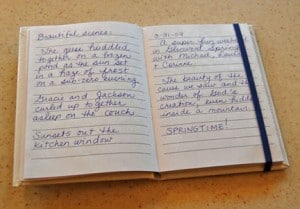 Beautiful scenes:
The geese huddled
together on a frozen
pond as the sun set
in a haze of frost
on a sub-zero evening.
Gracie and Jackson
curled up together
asleep on the couch
Sunsets out the
kitchen window
A super fun weekend
in Glenwood Springs
with Michael,
& Corinne.
The beauty of the
cave we saw and the
wonder of God's
creation, even hidden
inside a mountain.
SPRINGTIME!